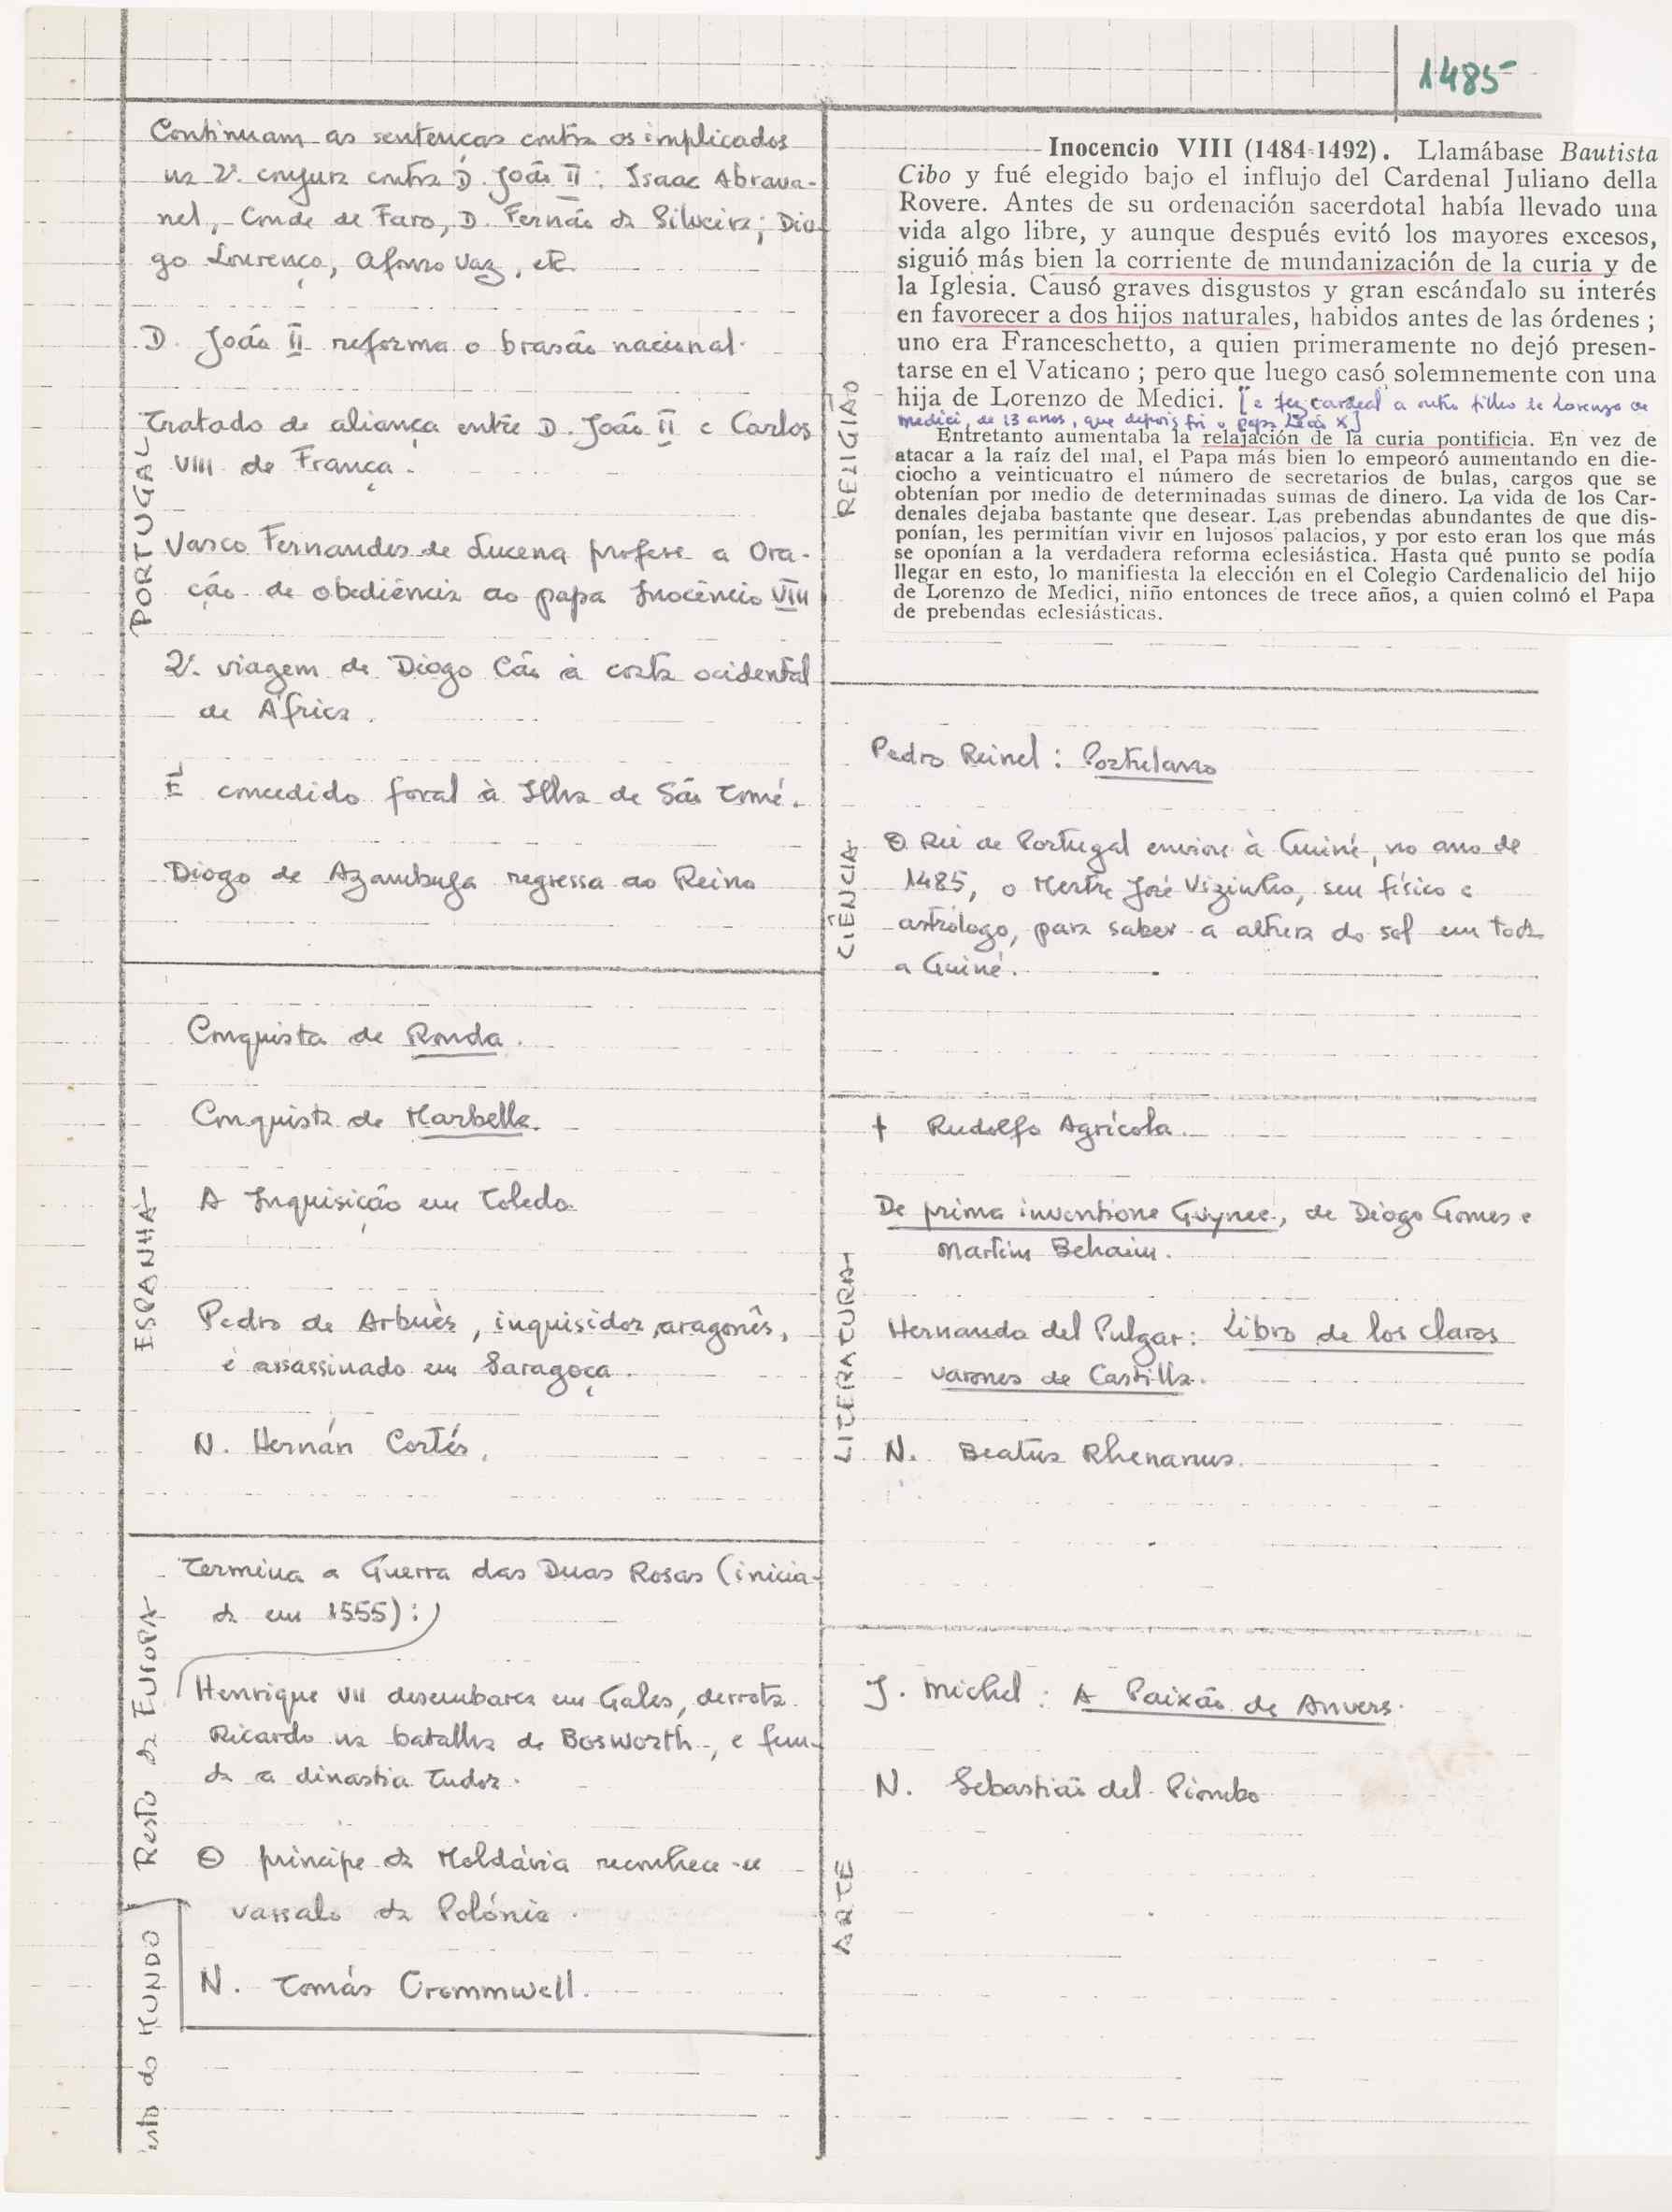 1485
PORTUGAL
Continuam as sentenças contra os implicados
na 2ª conjura contra D. João II: Isaac Abrava-
nel, Conde de Faro, D. Fernão da Silveira; Dio-
go Lourenço, Afonso Vaz, etc.
D. João II reforma o brasão nacional.
Tratado de aliança entre D. João II e Carlos
VIII de França.
Vasco Fernandes de Lucena profere a Ora-
ção de obediência ao papa Inocêncio VIII
2ª viagem de Diogo Cão à costa ocidental
de África.
É concedido foral à Ilha de São Tomé.
Diogo de Azambuja regressa ao Reino
ESPANHA
Conquista de Ronda.
Conquista de Marbella.
A Inquisição em Toledo.
Pedro de Arbuès, inquisidor aragonês,
é assassinado em Saragoça.
N. Hernán Cortés.
Resto da EUROPA
Termina a Guerra das Duas Rosas (inicia-
da em 1555):
Henrique VII desembarca em Gales, derrota
Ricardo na batalha de Bosworth, e fun-
da a dinastia Tudor.
O príncipe da Moldávia reconhece-se
vassalo da Polónia.
N. Tomás Crommwell.
esto do MUNDO
RELIGIÃO
Inocencio VIII (1484-1492). Llamábase Bautista
Cibo y fué elegido bajo el influjo del Cardenal Juliano della
Rovere. Antes de su ordenación sacerdotal había llevado una
vida algo libre, y aunque después evitó los mayores excesos,
siguió más bien la corriente de mundanización de la curia y de
la Iglesia. Causó graves disgustos y gran escándalo su interés
en favorecer a dos hijos naturales, habidos antes de las órdenes ;
uno era Franceschetto, a quien primeramente no dejó presen-
tarse en el Vaticano ; pero que luego casó solemnemente con una
hija de Lorenzo de Medici. [e fez cardeal a outro filho de Lorenzo de
Medici, de 13 anos, que depois foi o papa Leão X]
Entretanto aumentaba la relajación de la curia pontificia. En vez de
atacar a la raíz del mal, el Papa más bien lo empeoró aumentando en die-
ciocho a veinticuatro el número de secretarios de bulas, cargos que se
obtenían por medio de determinadas sumas de dinero. La vida de los Car-
denales dejaba bastante que desear. Las prebendas abundantes de que dis-
ponían, les permitían vivir en lujosos palacios, y por esto eran los que más
se oponían a la verdadera reforma eclesiástica. Hasta qué punto se podía
llegar en esto, lo manifiesta la elección en el Colegio Cardenalicio del hijo
de Lorenzo de Medici, niño entonces de trece años, a quien colmó el Papa
de prebendas eclesiásticas.
CIÊNCIA
Pedro Reinel: Portulano
O Rei de Portugal enviou à Guiné, no ano de
1485, o Mestre José Vizinho, seu físico e
astrólogo, para saber a altura do sol em toda
a Guiné.
LITERATURA
† Rudolfo Agrícola.
De prima inventione Guynee, de Diogo Gomes e
Martim Behaim.
Hernando del Pulgar: Libro de los claros
varones de Castilla.
N. Beatus Rhenanus.
ARTE
J. Michel: A Paixão de Anvers.
N. Sebastião del Piombo